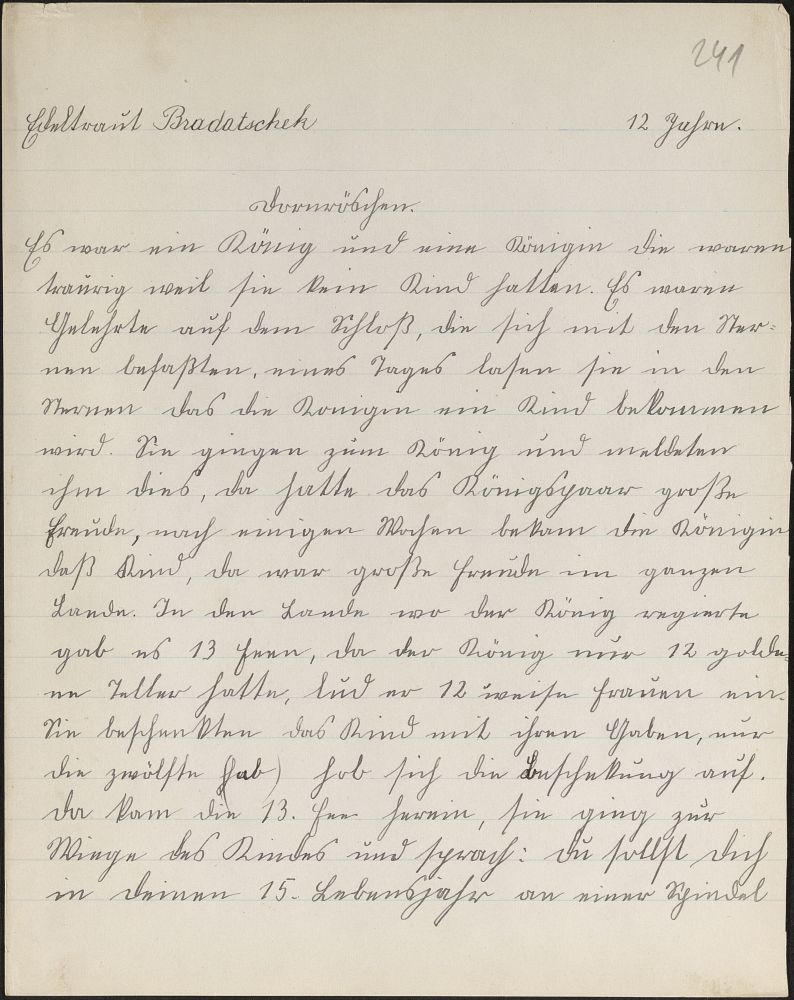 241
Edeltraut Bradatschek 12 Jahre.
Dornröschen.
Es war ein König und eine Königin die waren
traurig weil sie kein Kind hatten. Es waren
Gelehrte auf dem Schloß, die sich mit den Ster-
nen befaßten, eines Tages lasen sie in den
Sternen das die Königin ein Kind bekommen
wird. Sie gingen zum König und meldeten
ihm dies, da hatte das Königspaar große
Freude, nach einigen Wochen bekam die Königin
daß Kind, da war große Freude im ganzen
Lande. In den Lande wo der König regierte
gab es 13 Feen, da der König nur 12 golde-
ne Teller hatte, lud er 12 weise Frauen ein.
Sie beschenkten das Kind mit ihren Gaben, nur
die zwölfte (hab) hob sich die Beschekung auf.
Da kam die 13. Fee herein, sie ging zur
Wiege des Kindes und sprach: Du sollst Dich
in Deinen 15. Lebensjahr an einer Spindel